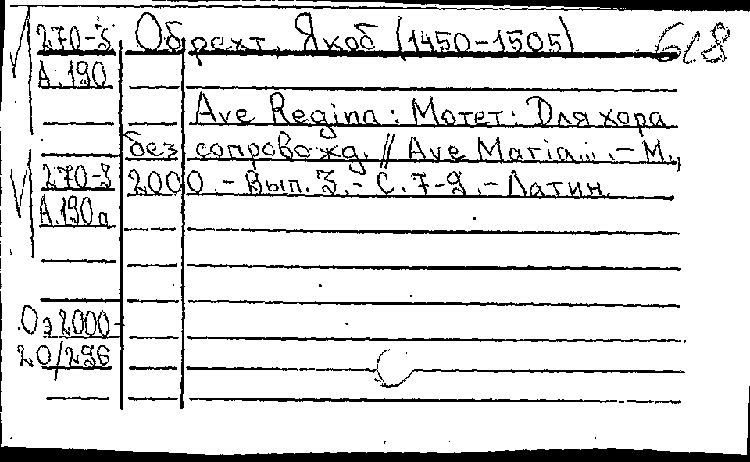 270-3 Обрехт, Якоб (1450-1505) 618
А.190
Ave Regina: Мотет: Для хора
без сопровожд. // Ave Maria... .- М.,
270-3 2000.- Вып. 3.- С. 7-9.- Латин.
А.190а
Оэ2000-
20/296